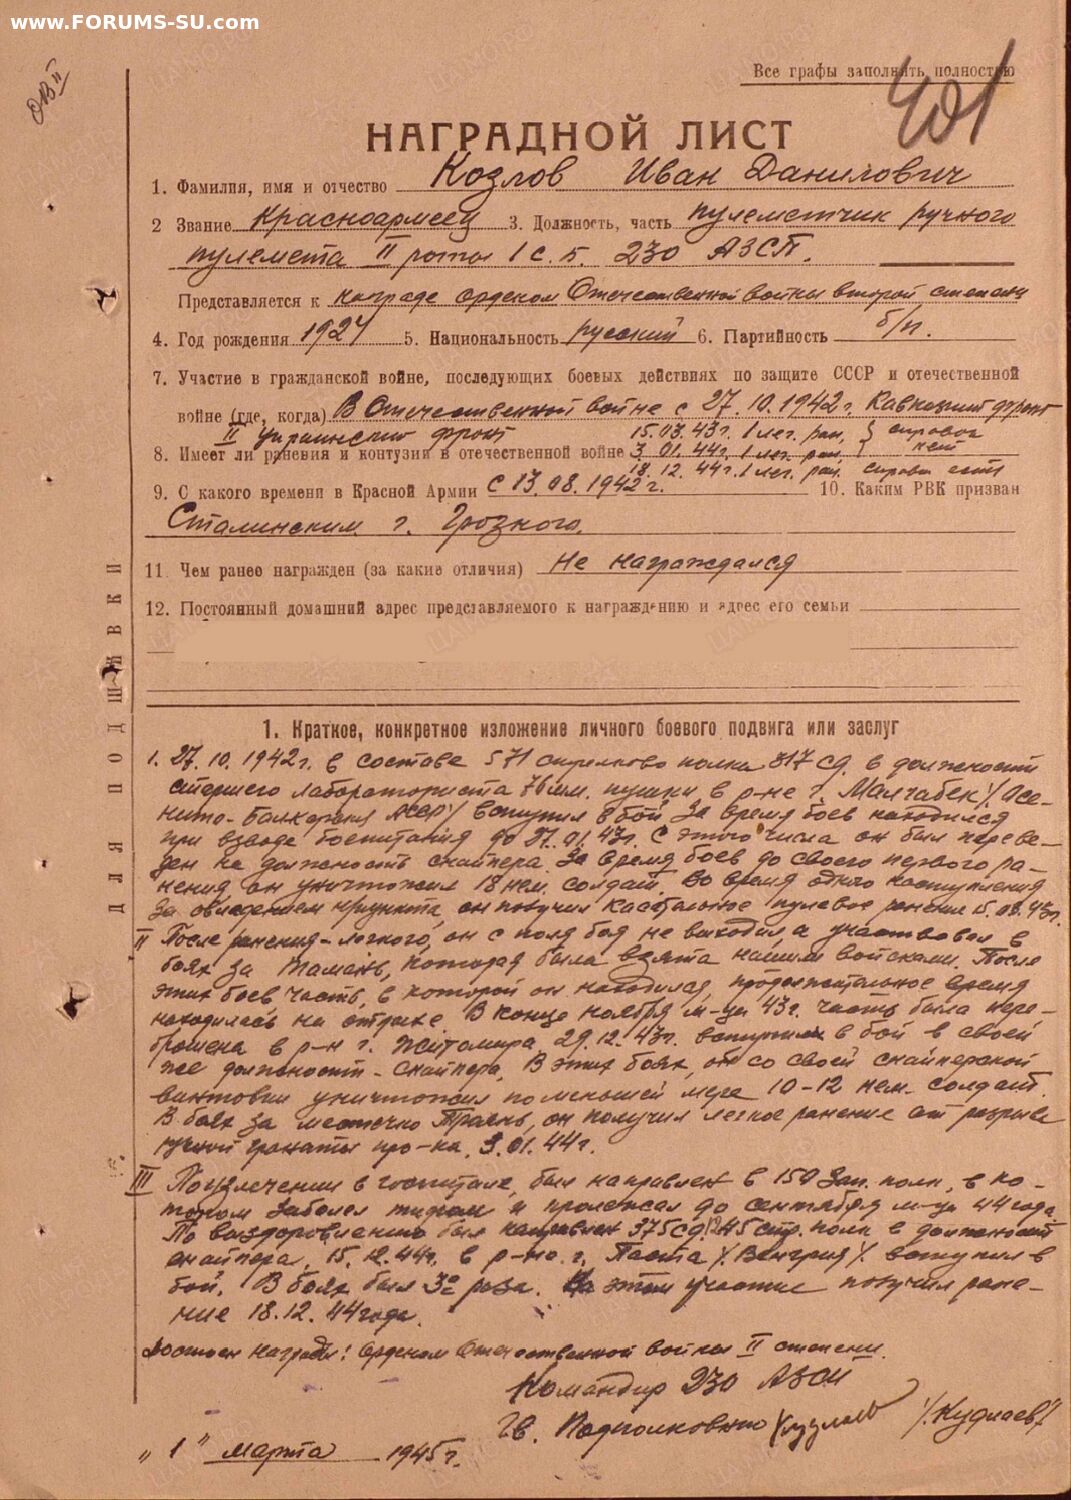 www.FORUMS-SU.com
ОВ II
Все графы заполнять полностью
401
НАГРАДНОЙ ЛИСТ
1. Фамилия, имя и отчество Козлов Иван Данилович
2 Звание Красноармеец 3. Должность, часть пулеметчик ручного
пулемета II роты 1 с. б. 230 АЗСП.
Представляется к награде орденом Отечественной войны второй степени
4. Год рождения 1924 5. Национальность русский 6. Партийность б/п.
7. Участие в гражданской войне, последующих боевых действиях по защите СССР и отечественной
войне (где, когда) В Отечественной войне с 27.10.1942г. Кавказский фронт
II Украинский фронт 15.03.43г. 1 лег. ран. } справок
8. Имеет ли ранения и контузии в отечественной войне 3.01.44г. 1 лег. ран. нет
18.12.44г. 1 лег. ран. справка есть
9. С какого времени в Красной Армии с 13.08.1942г. 10. Каким РВК призван
Сталинским г. Грозного.
11. Чем ранее награжден (за какие отличия) Не награждался
12. Постоянный домашний адрес представляемого к награждению и адрес его семьи
ДЛЯ ПОДШИВКИ
1. Краткое, конкретное изложение личного боевого подвига или заслуг
1. 27.10.1942г. в составе 571 стрелково полка 317 сд. в должности
76 мм. пушки в р-не г. Малгабек /Осе-
тино-Балкарская АССР/ вступил в бой. За время боев находился
при взводе боепитания до 27.01.43г. С этого числа он был переве-
ден на должность снайпера. За время боев до своего первого ра-
нения он уничтожил 18 нем. солдат. Во время одного наступления
за овладением он получил касательное пулевое ранение 15.03.43г.
II После ранения - легкого, он с поля боя не выходил а участвовал в
боях за Тамань, которая была взята нашими войсками. После
этих боев часть, в которой он находился, продолжительное время
находилась на отдыхе. В конце ноября м-ца 43г. часть была пере-
брошена в р-н г. Житомира. 29.12.43г. вступил в бой в своей
же должности - снайпера. В этих боях, он со своей снайперской
винтовки уничтожил по меньшей мере 10-12 нем. солдат.
В боях за местечко он получил легкое ранение от разрыва
ручной гранаты пр-ка. 3.01.44г.
III По излечении в госпитале, был направлен в 150 Зап. полк, в ко-
тором заболел тифом и пролежал до сентября м-ца 44 года.
По выздоровлению был направлен 375 сд. 1245 стр. полк в должности
снайпера. 15.12.44г. в р-не г. /Венгрия/ вступил в
бой. В боях был 3 раза. На этом участке получил ране-
ние 18.12.44 года.
Достоин награды: Орденом Отечественной войны II степени.
Командир 230 АЗСП
Гв. Подполковник /Кудлаев/
„ 1 " марта 1945г.